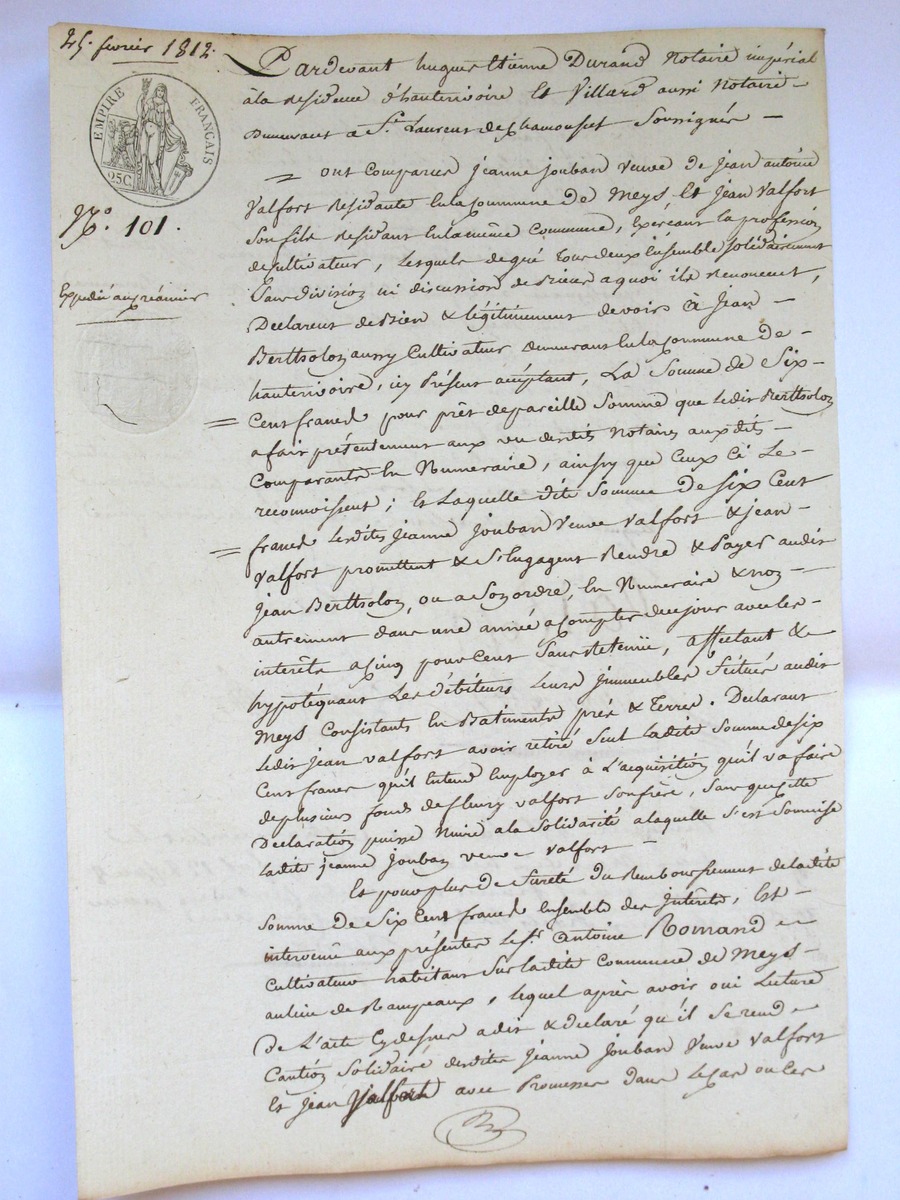 25. fevrier 1812.
EMPIRE FRANÇAIS
25C
N.º 101.
Expedié au créancier
Pardevant hugues Etienne Durand Notaire impérial
à la Residence d'hauterivoire Et Villard aussi Notaire
Demeurant a St. Laurent de Chamousset Soussignés —
= ont Comparus jeanne joüban veuve De jean antoine
Valfort Residante En la Commune De Meys, Et jean Valfort
Son fils Residant En la même Commune, Exerçant la profession
de Cultivateur, Lesquels de gré Tous deux Ensemble Solidairement
Sans division ni discussion de Biens a quoi ils Renoncent,
Declarent de Bien & légitimement devoir à Jean —
Bertholon aussy Cultivateur demeurant En la Commune De —
hauterivoire, icy Présent acceptant, La Somme De Six —
= Cent francs pour prêt de pareille Somme que Ledit Bertholon
a fait présentement aux vu desdits Notaires aux dits —
Comparants En Numeraire, ainsy que Ceux Ci Le —
reconnoissent; Et Laquelle dite Somme De Six Cent
= francs Lesdits Jeanne Jouban Veuve Valfort & jean —
Valfort promettent & S'Engagent Rendre & Payer audit
Jean Bertholon, ou a Son ordre, En Numeraire & non —
autrement dans une année a Compter de ce jour avec les —
interêts a cinq pour Cent Sans Retenüe, affectant &
hypotéquant Les débiteurs Leurs Jmmeubles Situés audit
Meys Consistants En Batiments prés & Terres. Declarant
Ledit jean Valfort avoir retiré Seul Ladite Somme de Six
Cent francs qu'il Entend Employer à L'acquisition qu'il va faire
de plusieurs fonds de fleury Valfort Son frère, Sans que cette
Declaration puisse Nuire a la Solidarité a laquelle S'est Soumise
Ladite jeanne Jouban veuve Valfort —
Et pour plus De Sureté Du Remboursement de ladite
Somme De Six Cent francs Ensemble des Interêts, Est —
intervenu aux présentes Le Sr. Antoine Romand
Cultivateur habitant Sur Ladite Commune De Meys —
au lieu de Rampeaux, Lequel après avoir oui Lecture
De L'acte Cy dessus a dit & declaré qu'il Se rend
Caution Solidaire desdits Jeanne Jouban Veuve Valfort
Et Jean Valfort avec Promesse Dans Le Cas ou Les